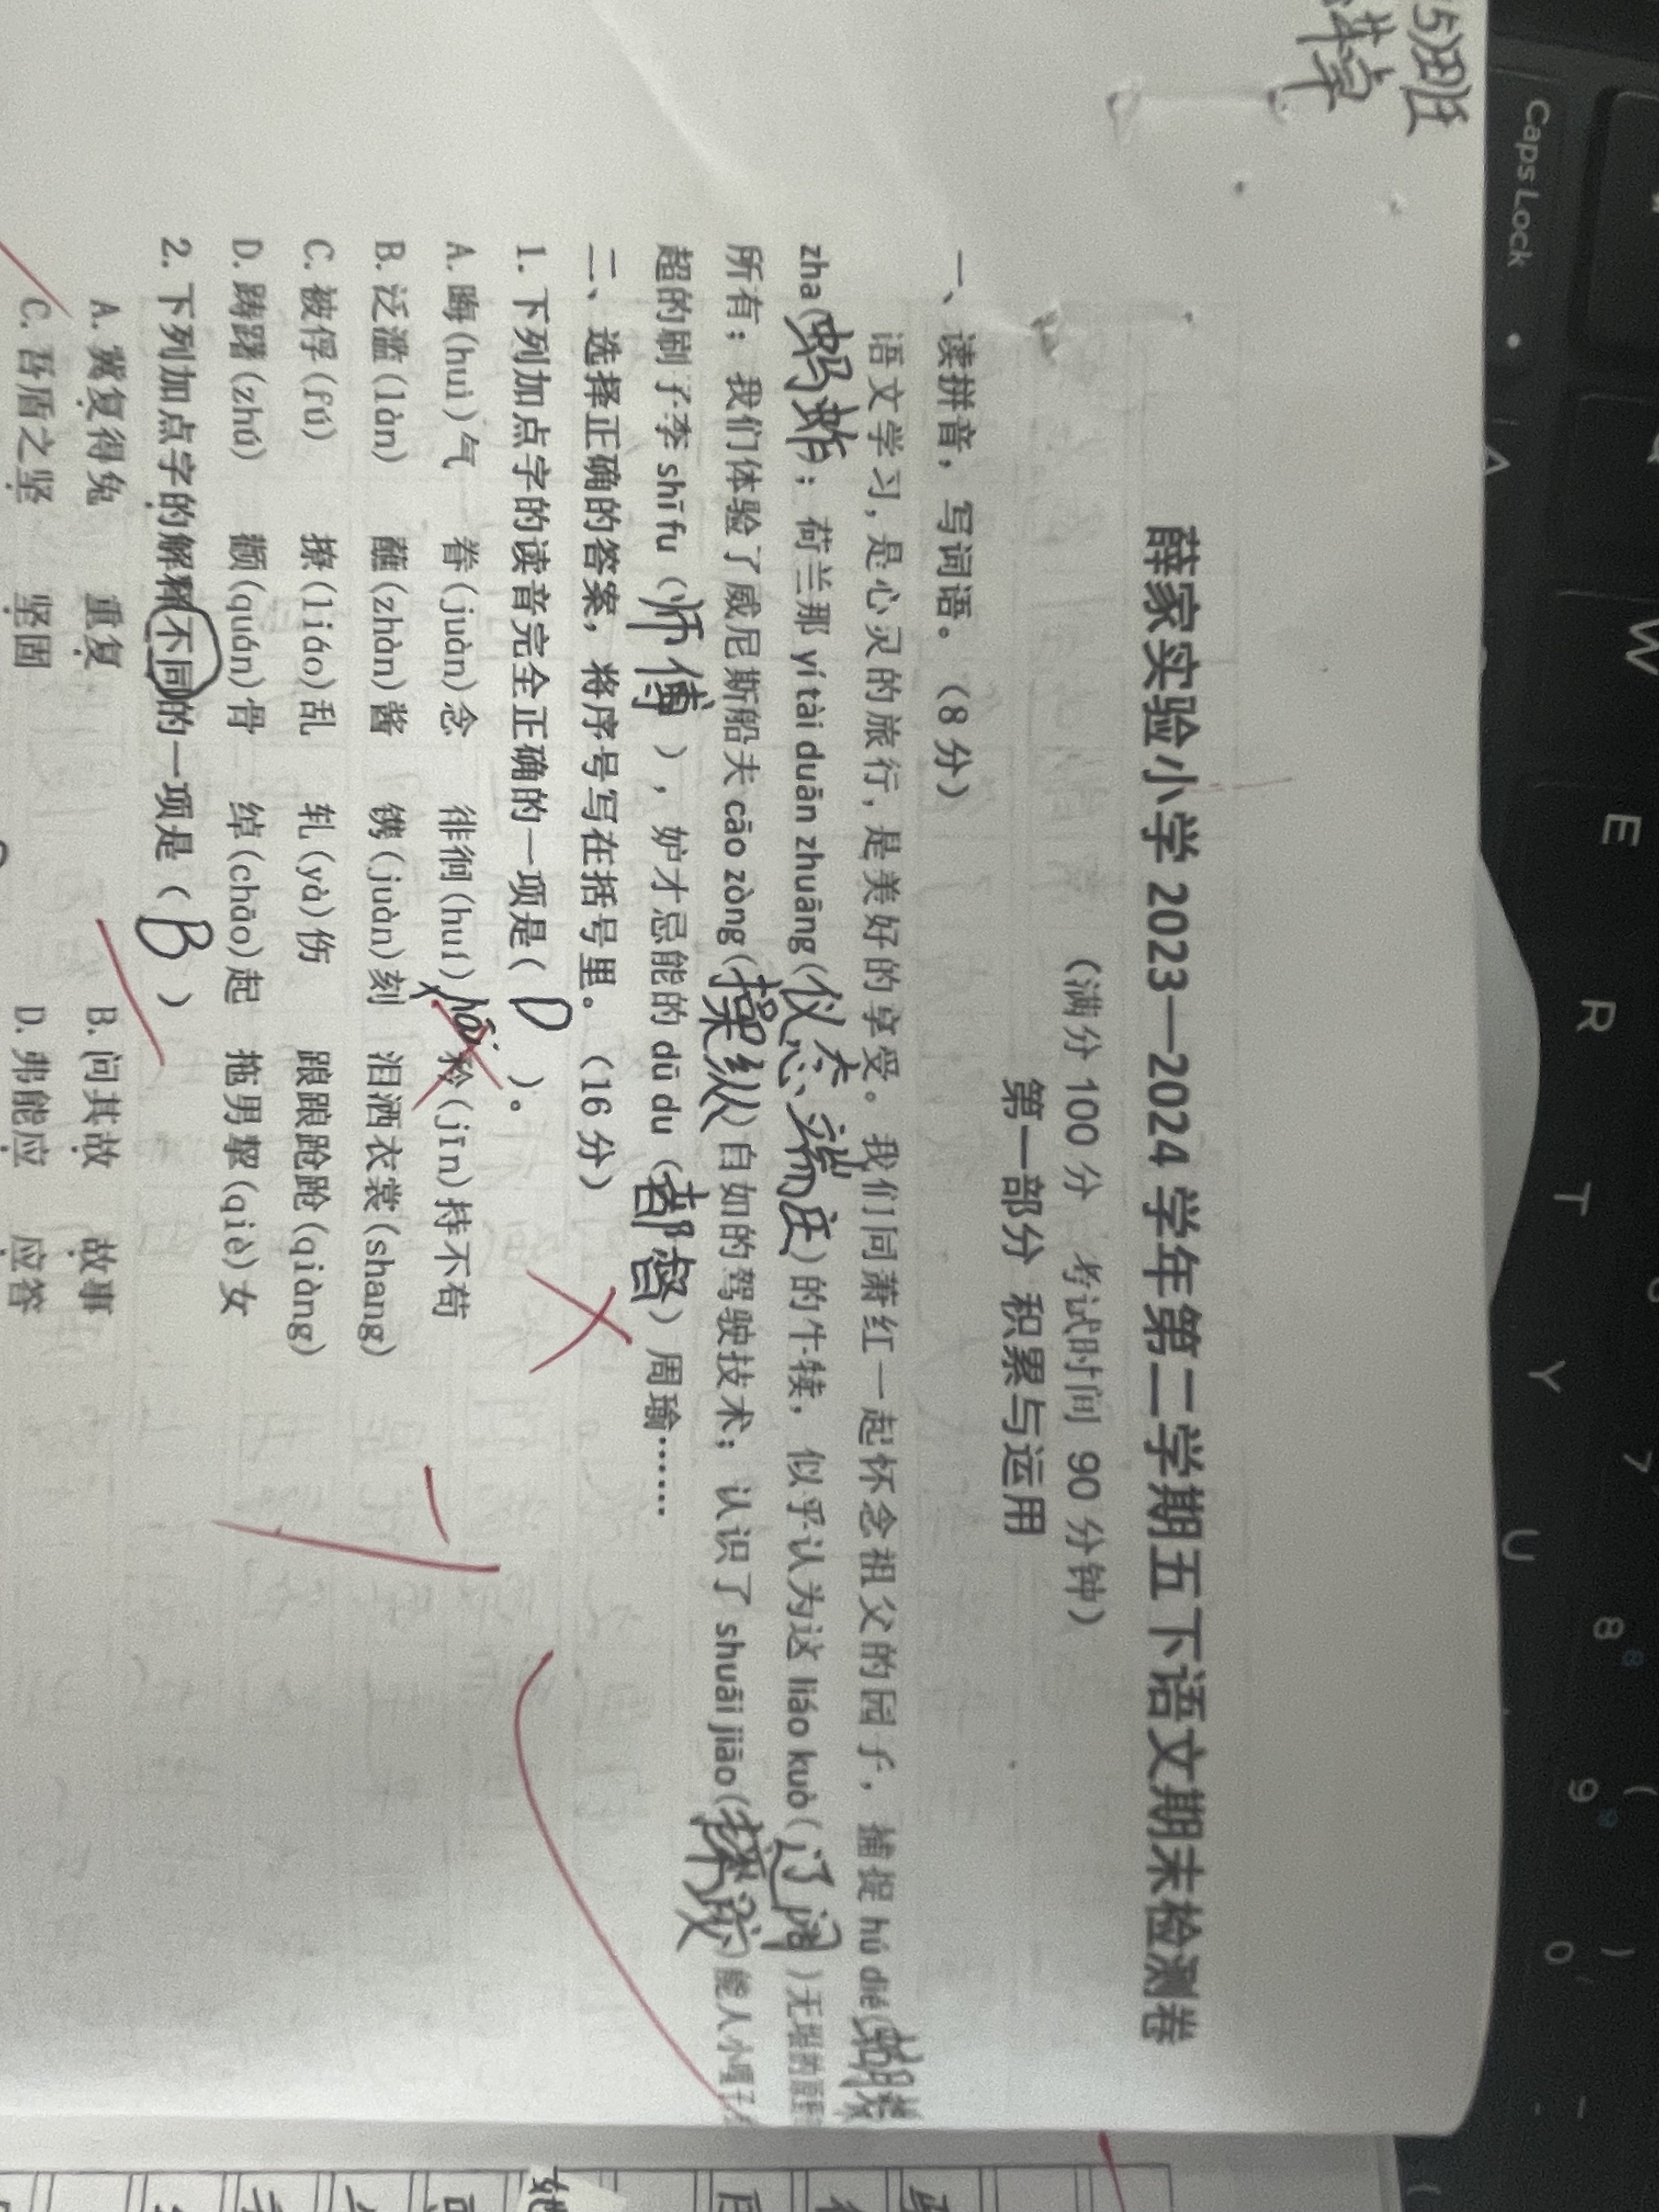 5)班
薛家实验小学 2023—2024 学年第二学期五下语文期末检测卷
（满分 100 分 考试时间 90 分钟）
第一部分 积累与运用
一、读拼音，写词语。（8 分）
语文学习，是心灵的旅行，是美好的享受。我们同萧红一起怀念祖父的园子，捕捉 hú dié(蝴蝶
zha(蚂蚱)；荷兰那 yí tài duān zhuāng(仪态端庄)的牛犊，似乎认为这 liáo kuò(辽阔)无垠的原野
所有；我们体验了威尼斯船夫 cāo zòng(操纵)自如的驾驶技术；认识了 shuāi jiāo(摔跤)能人小嘎子
超的刷子李 shī fu（师傅），妒才忌能的 dū du（都督）周瑜……
二、选择正确的答案，将序号写在括号里。（16 分）
1. 下列加点字的读音完全正确的一项是( D )。
A. 晦(huì)气 眷(juàn)念 徘徊(huí) 矜(jīn)持不苟
B. 泛滥(làn) 蘸(zhàn)酱 镌(juàn)刻 泪洒衣裳(shang)
C. 被俘(fú) 撩(liáo)乱 轧(yà)伤 踉踉跄跄(qiàng)
D. 踌躇(zhú) 颧(quán)骨 绰(chāo)起 拖男挈(qiè)女
2. 下列加点字的解释不同的一项是（ B ）
A. 冀复得兔 重复 B. 问其故 故事
C. 吾盾之坚 坚固 D. 弗能应 应答